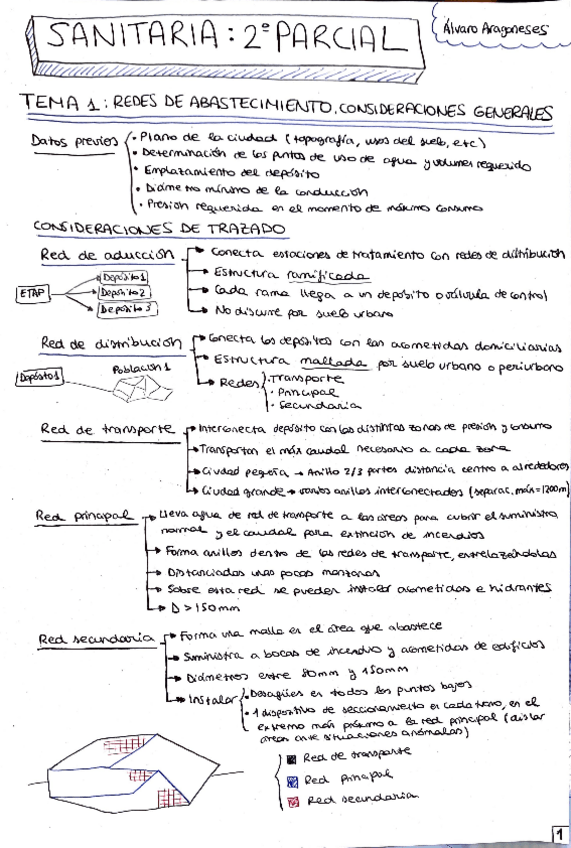 SANITARIA: 2º PARCIAL
Álvaro Aragoneses
TEMA 1: REDES DE ABASTECIMIENTO. CONSIDERACIONES GENERALES
Datos previos
· Plano de la ciudad (topografía, usos del suelo, etc)
· Determinación de los puntos de uso de agua y volumen requerido
· Emplazamiento del depósito
· Diámetro mínimo de la conducción
· Presión requerida en el momento de máximo consumo
CONSIDERACIONES DE TRAZADO
Red de aducción
→ Conecta estaciones de tratamiento con redes de distribución
→ Estructura ramificada
→ Cada rama llega a un depósito o válvula de control
→ No discurre por suelo urbano
ETAP
Depósito 1
Depósito 2
Depósito 3
Red de distribución
→ Conecta los depósitos con las acometidas domiciliarias
→ Estructura mallada por suelo urbano o periurbano
→ Redes
· Transporte
· Principal
· Secundaria
Depósito 1
Población 1
Red de transporte
→ Interconecta depósito con las distintas zonas de presión y consumo
→ Transportan el máx caudal necesario a cada zona
→ Ciudad pequeña → Anillo 2/3 partes distancia centro a alrededores
→ Ciudad grande → varios anillos interconectados (separac. máx = 1200m)
Red principal
→ Lleva agua de red de transporte a las áreas para cubrir el suministro
normal y el caudal para extinción de incendios
→ Forma anillos dentro de las redes de transporte, entrelazándolas
→ Distanciadas unas pocas manzanas
→ Sobre esta red se pueden instalar acometidas e hidrantes
→ D > 150mm
Red secundaria
→ Forma una malla en el área que abastece
→ Suministra a bocas de incendio y acometidas de edificios
→ Diámetros entre 80mm y 150mm
→ Instalar
· Desagües en todos los puntos bajos
· 1 dispositivo de seccionamiento en cada tramo, en el
extremo más próximo a la red principal (aislar
áreas ante situaciones anómalas)
Red de transporte
Red principal
Red secundaria
1